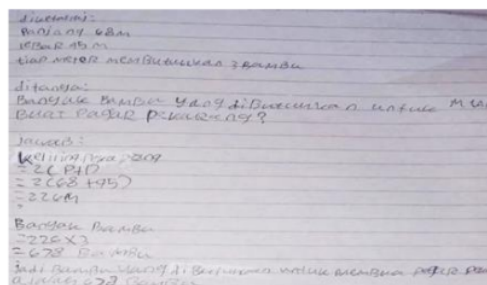 diketahui:
Panjang 68m
lebar 45 m
tiap meter membutuhkan 3 Bambu
ditanya:
Banyak Bambu yang diButuhkan untuk
Buat Pagar Pekarang?
Jawab:
Keliling
= 2(P+l)
= 2(68 +45)
= 226M
Banyak Bambu
= 226 x 3
= 678 Bambu
Jadi Bambu yang di Butuhkan untuk membuat pagar
adalah 678 Bambu